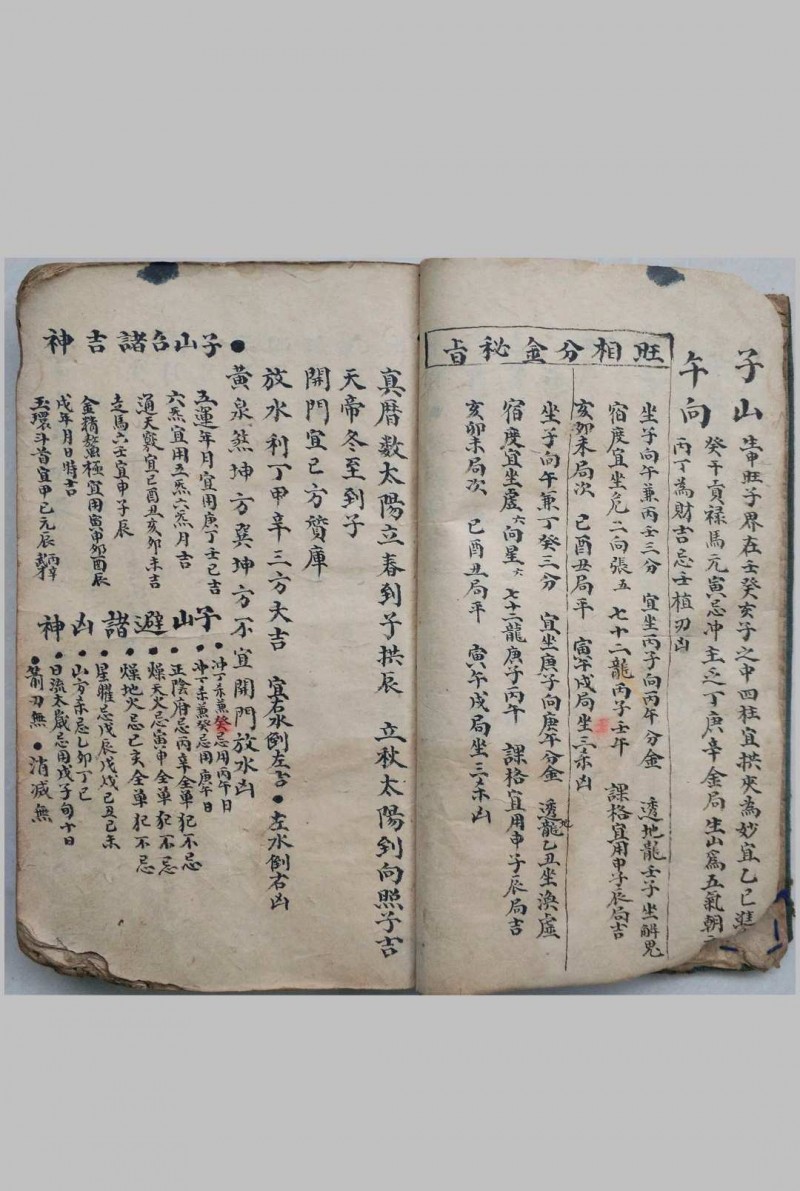 子山
午向
生申旺子界在壬癸亥子之中四柱宜拱夾為妙宜乙巳
癸干貢祿馬元寅忌冲主之丁庚辛金局生山為五氣朝
丙丁為財吉忌壬植刃凶
旺相分金秘旨
坐子向午兼丙壬三分 宜坐丙子向丙午分金 透地龍壬子坐解鬼
宿度宜坐危二向張五 七十二龍丙子壬午 課格宜用申子辰局吉
亥卯未局次 巳酉丑局平 寅午戌局坐三杀凶
坐子向午兼丁癸三分 宜坐庚子向庚午分金 透地龍乙丑坐渙虛
宿度宜坐虛六向星六 七十二龍庚子丙午 課格宜用申子辰局吉
亥卯未局次 巳酉丑局平 寅午戌局坐三杀凶
真曆数太陽立春到子拱辰 立秋太陽到向照子吉
天帝冬至到子
開門宜巳方贅庫
放水利丁甲辛三方大吉 宜右水倒左吉•左水倒右凶
黃泉煞坤方巽坤方不宜開門放水凶
•子山台諸吉神
五運年月宜用庚丁壬巳吉
六炁宜用五炁六炁月吉
通天竅宜巳酉丑亥卯未吉
走馬六壬宜申子辰
金精鰲極宜用寅申卯酉辰
戌年月日時吉
玉環斗首宜甲巳元辰 丙辛
子山避諸凶神
•冲丁杀兼癸忌用丙午日
•冲丁杀兼癸忌用庚午日
•正陰府忌丙辛全单犯不忌
•燥天火忌寅申全单犯不忌
•燥地火忌巳亥全单犯不忌
•星曜忌戊辰戊戌己丑己未
•山方杀忌乙卯丁巳
•日流太歲忌用戊子旬十日
•箭刃無•消滅無